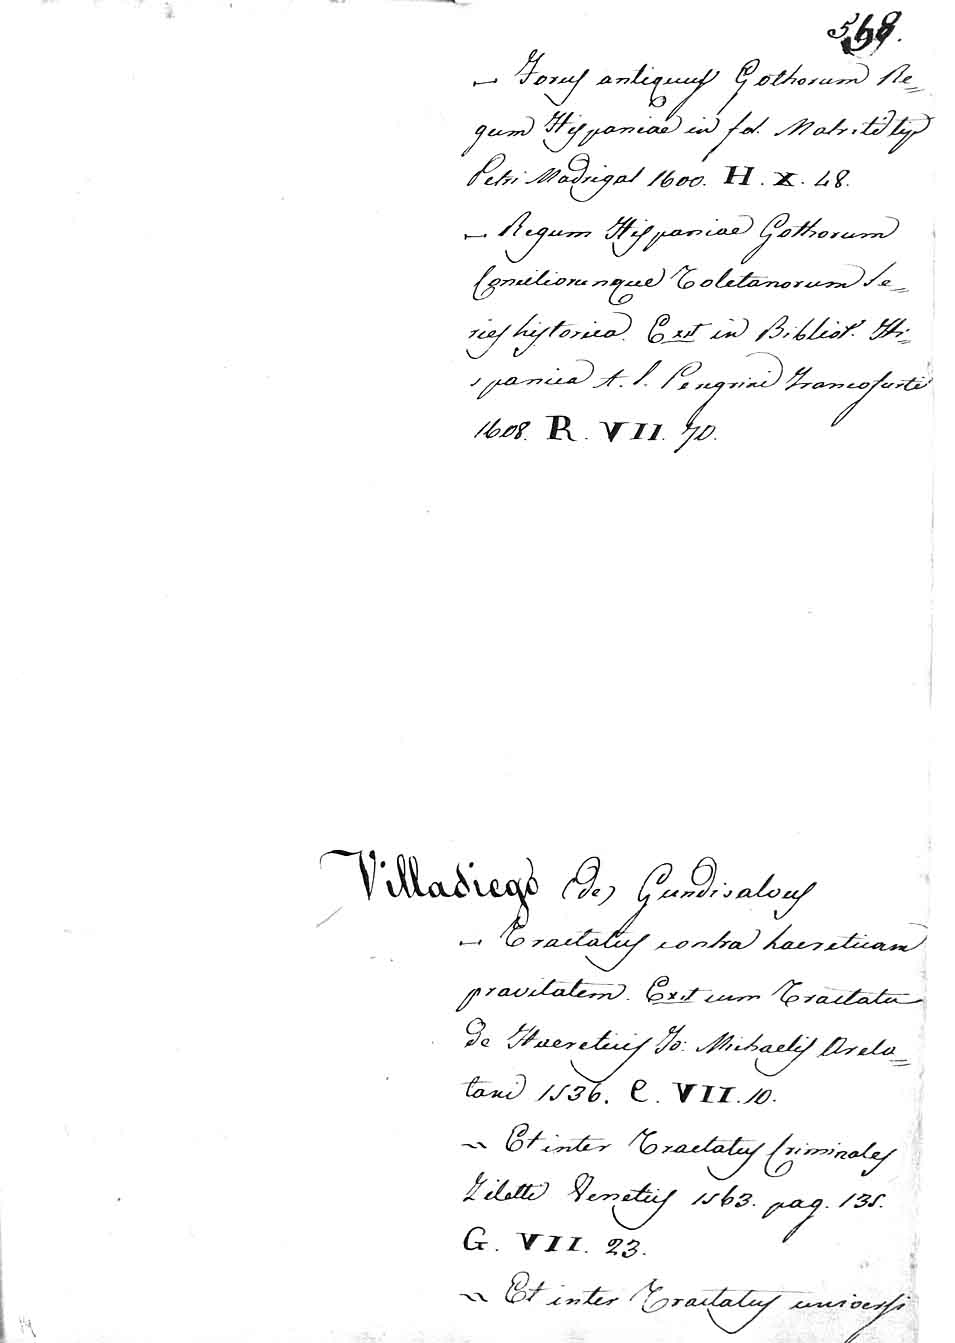 568.
— Forus antiquus Gothorum Re=
gum Hispaniae in fol. Matriti typ
Petri Madrigal 1600. H. X. 48.
— Regum Hispaniae Gothorum
Conciliorumque Toletanorum Se=
ries historica. Exit in Bibliot. Hi=
spanica A. S. Peregrini Francofurti
1608. R. VII. 70.
Villadiego (de) Gundisalvus
— Tractatus contra haereticam
pravitatem. Exit cum Tractatu
de Haereticis Jo: Michaelis Arela=
tani 1536. C. VII. 10.
~ Et inter Tractatus Criminales
Ziletti Venetiis 1563. pag. 135.
G. VII. 23.
~ Et inter Tractatus universi